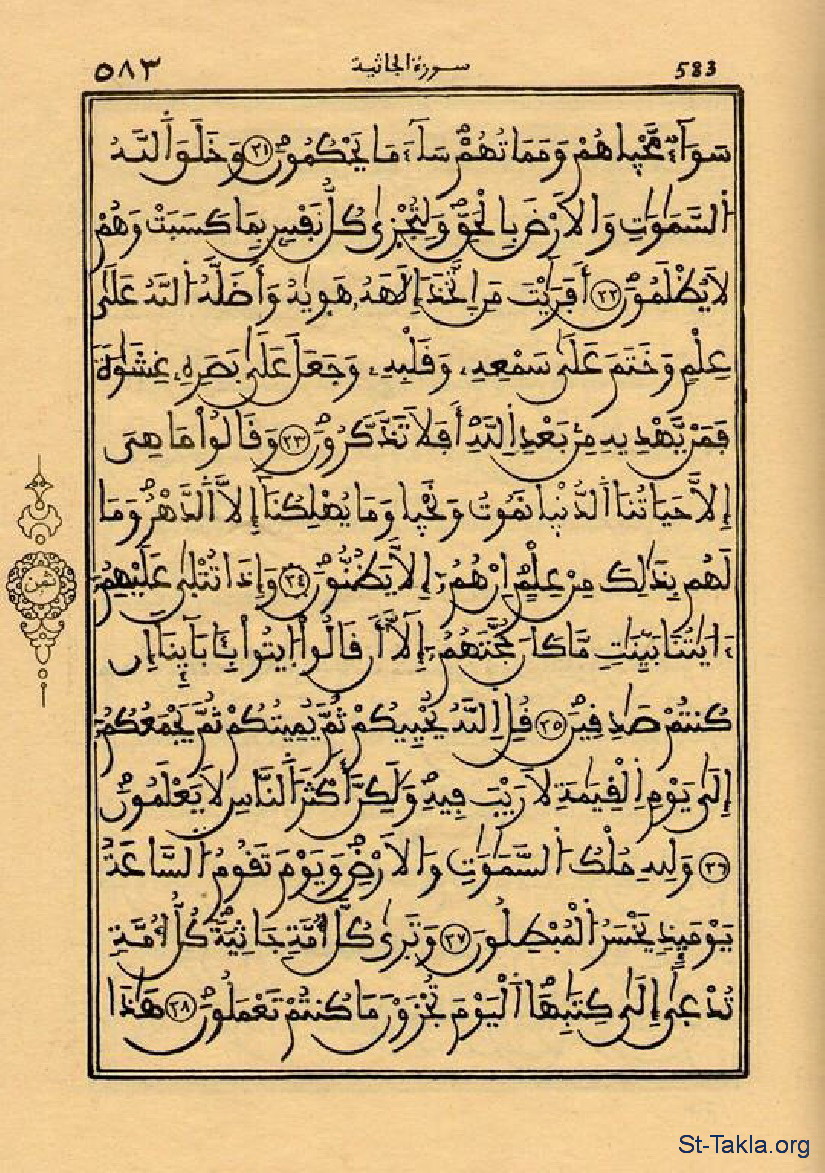 ٥٨٣ سورة الجاثية 583
سَوَآءٌ مَّحْيِاهُمْ وَمَمَاتُهُمْ سَآءَ مَا يَحْكُمُونَ ٢١ وَخَلَقَ اَللَّهُ
اَلسَّمَٰوَٰتِ وَالَارْضَ بِالْحَقِّ وَلِتُجْزَىٰ كُلُّ نَفْسٍ بِمَا كَسَبَتْ وَهُمْ
لَا يُظْلَمُونَ ٢٢ أَفَرَٰيْتَ مَنِ اِتَّخَذَ إِلَٰهَهُۥ هَوِيٰهُ وَأَضَلَّهُ اُللَّهُ عَلَىٰ
عِلْمٍ وَخَتَمَ عَلَىٰ سَمْعِهِۦ وَقَلْبِهِۦ وَجَعَلَ عَلَىٰ بَصَرِهِۦ غِشَٰوَةً
فَمَنْ يَّهْدِيهِ مِنۢ بَعْدِ اِللَّهِ أَفَلَا تَذَّكَّرُونَ ٢٣ وَقَالُواْ مَا هِىَ
إِلَّا حَيَاتُنَا اَلدُّنْيِا نَمُوتُ وَنَحْيِا وَمَا يُهْلِكُنَآ إِلَّا اَلدَّهْرُ وَمَا
لَهُم بِذَٰلِكَ مِنْ عِلْمٍ اِنْ هُمُۥٓ إِلَّا يَظُنُّونَ ٢٤ وَإِذَا تُتْلَىٰ عَلَيْهِمُۥٓ
ءَايَٰتُنَا بَيِّنَٰتٍ مَّا كَانَ حُجَّتَهُمُۥٓ إِلَّآ أَن قَالُواْ اُيتُواْ بِـَٔابَآئِنَآ إِن
كُنتُمْ صَٰدِقِينَ ٢٥ قُلِ اِللَّهُ يُحْيِيكُمْ ثُمَّ يُمِيتُكُمْ ثُمَّ يَجْمَعُكُمُۥٓ
إِلَىٰ يَوْمِ اِلْقِيَٰمَةِ لَا رَيْبَ فِيهِ وَلَٰكِنَّ أَكْثَرَ اَلنَّاسِ لَا يَعْلَمُونَ
٢٦ وَلِلهِ مُلْكُ اُلسَّمَٰوَٰتِ وَالَارْضِ وَيَوْمَ تَقُومُ اُلسَّاعَةُ
يَوْمَئِذٍ يَخْسَرُ اُلْمُبْطِلُونَ ٢٧ وَتَرَىٰ كُلَّ أُمَّةٍ جَاثِيَةً كُلُّ أُمَّةٍ
تُدْعَىٰٓ إِلَىٰ كِتَٰبِهَا اَلْيَوْمَ تُجْزَوْنَ مَا كُنتُمْ تَعْمَلُونَ ٢٨ هَٰذَا
ثمن
St-Takla.org